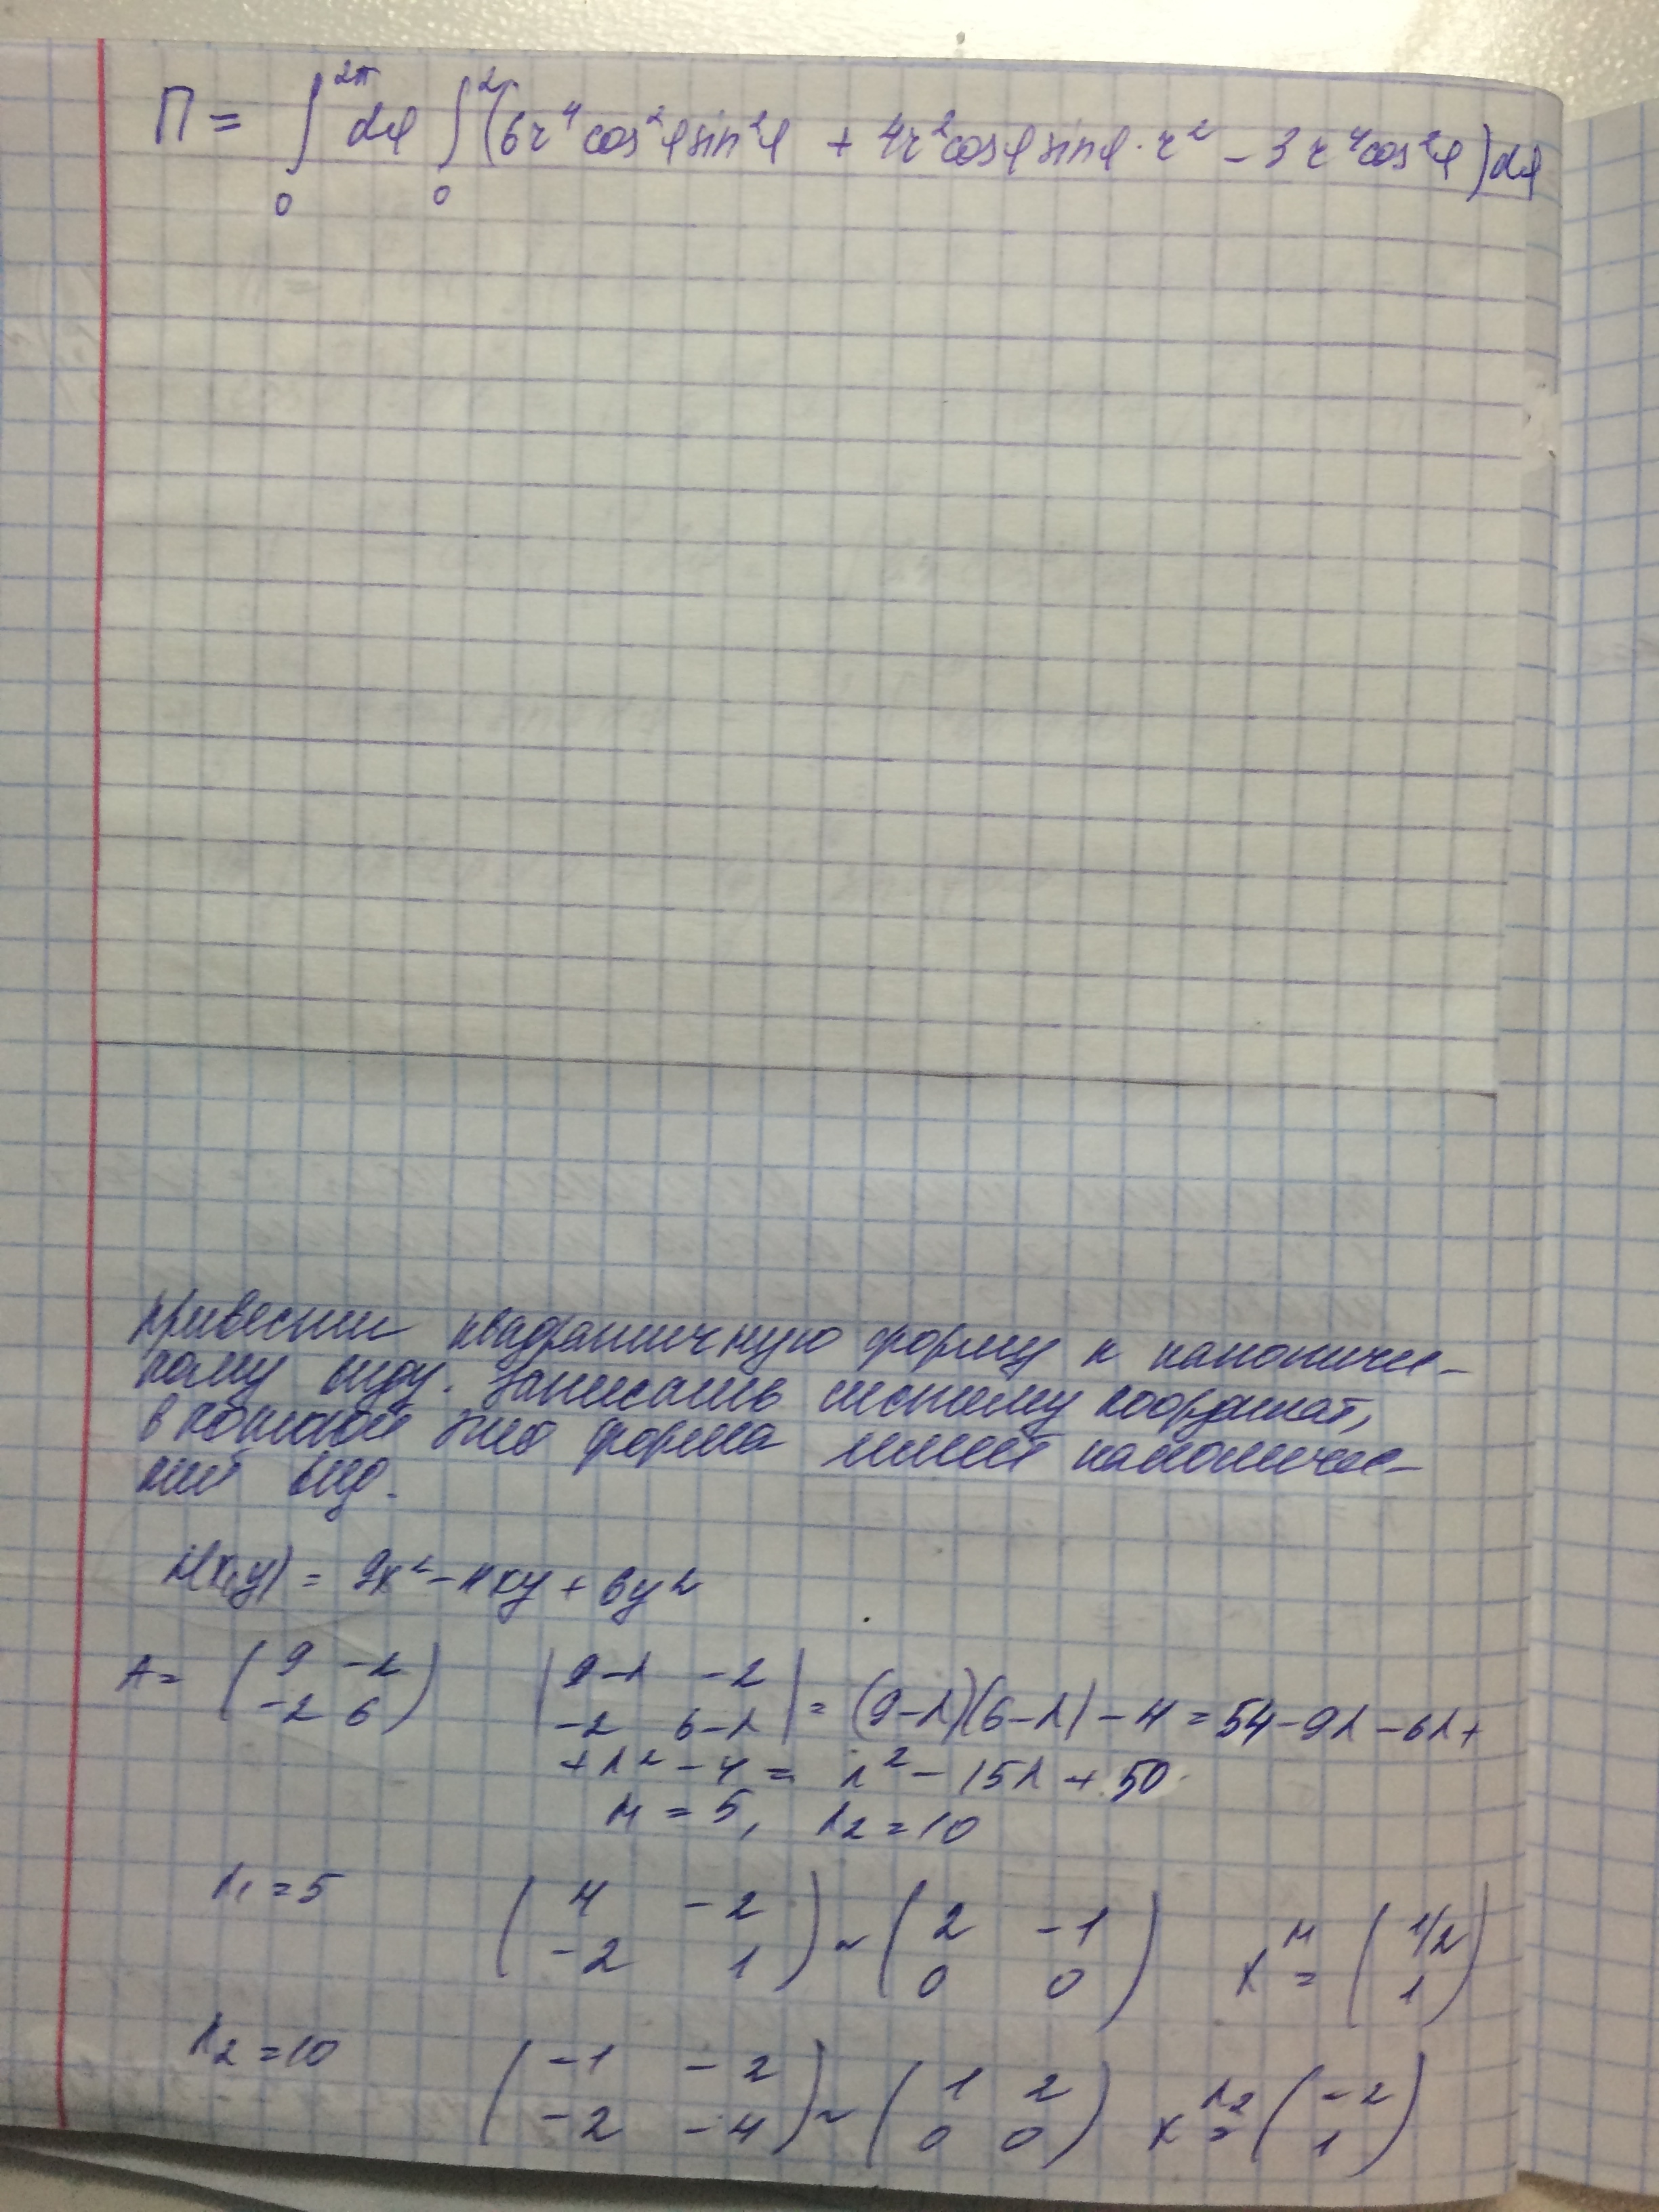 П = ∫₀^{2π} dφ ∫₀^{2} (6r⁴ cos²φ sin²φ + 4r² cosφ sinφ · r² − 3r⁴ cos²φ) dφ
привести квадратичную форму к каноничес-
кому виду. Записать систему координат,
в которой эта форма имеет каноничес-
кий вид.
(x,y) = 9x² − 4xy + 6y²
A = (9 −2; −2 6) |9−λ −2; −2 6−λ| = (9−λ)(6−λ) − 4 = 54 − 9λ − 6λ +
+ λ² − 4 = λ² − 15λ + 50
λ₁ = 5, λ₂ = 10
λ₁ = 5 (4 −2; −2 1) ~ (2 −1; 0 0) X^{λ₁} = (1/2; 1)
λ₂ = 10 (−1 −2; −2 −4) ~ (1 2; 0 0) X^{λ₂} = (−2; 1)